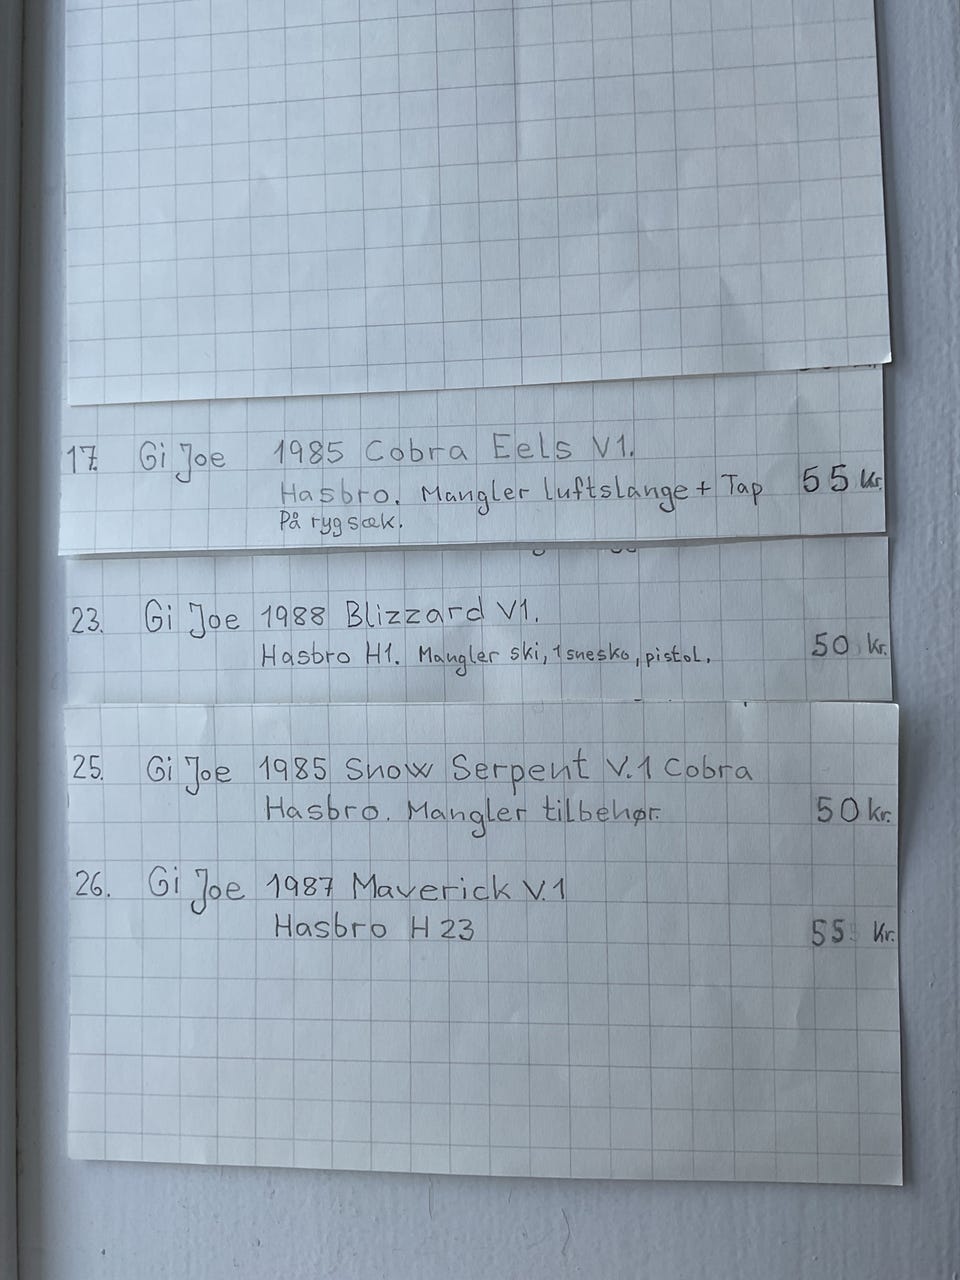 17. Gi Joe 1985 Cobra Eels V1.
Hasbro. Mangler luftslange + Tap 55 Kr.
På rygsæk.
23. Gi Joe 1988 Blizzard V1.
Hasbro H1. Mangler ski, 1 snesko, pistol. 50 Kr.
25. Gi Joe 1985 Snow Serpent V.1 Cobra
Hasbro. Mangler tilbehør. 50 Kr.
26. Gi Joe 1987 Maverick V.1
Hasbro H 23 55 Kr.